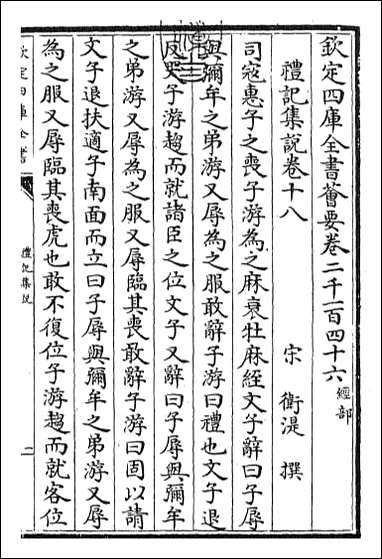 欽定四庫全書薈要卷二千一百四十六經部
禮記集說卷十八
宋 衛湜 撰
司寇惠子之喪子游為之麻衰牡麻絰文子辭曰子辱
與彌牟之弟游又辱為之服敢辭子游曰禮也文子退
反哭子游趨而就諸臣之位文子又辭曰子辱與彌牟
之弟游又辱為之服又辱臨其喪敢辭子游曰固以請
文子退扶適子南面而立曰子辱與彌牟之弟游又辱
為之服又辱臨其喪虎也敢不復位子游趨而就客位
欽定四庫全書
禮記集説